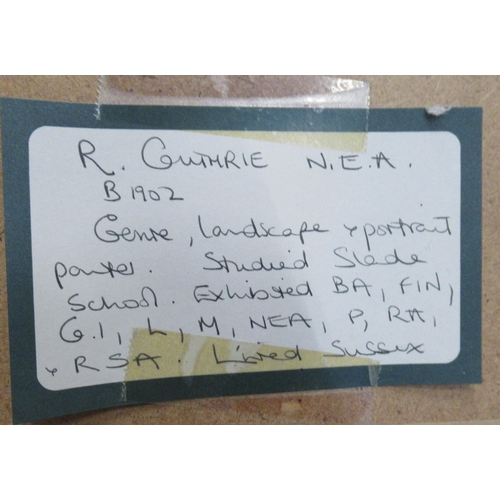 R. GUTHRIE N.E.A.
B 1902
Genre, landscape & portrait
painter. Studied Slade
School. Exhibited BA, FIN,
G.I, L, M, NEA, P, RA,
& RSA. Lived Sussex